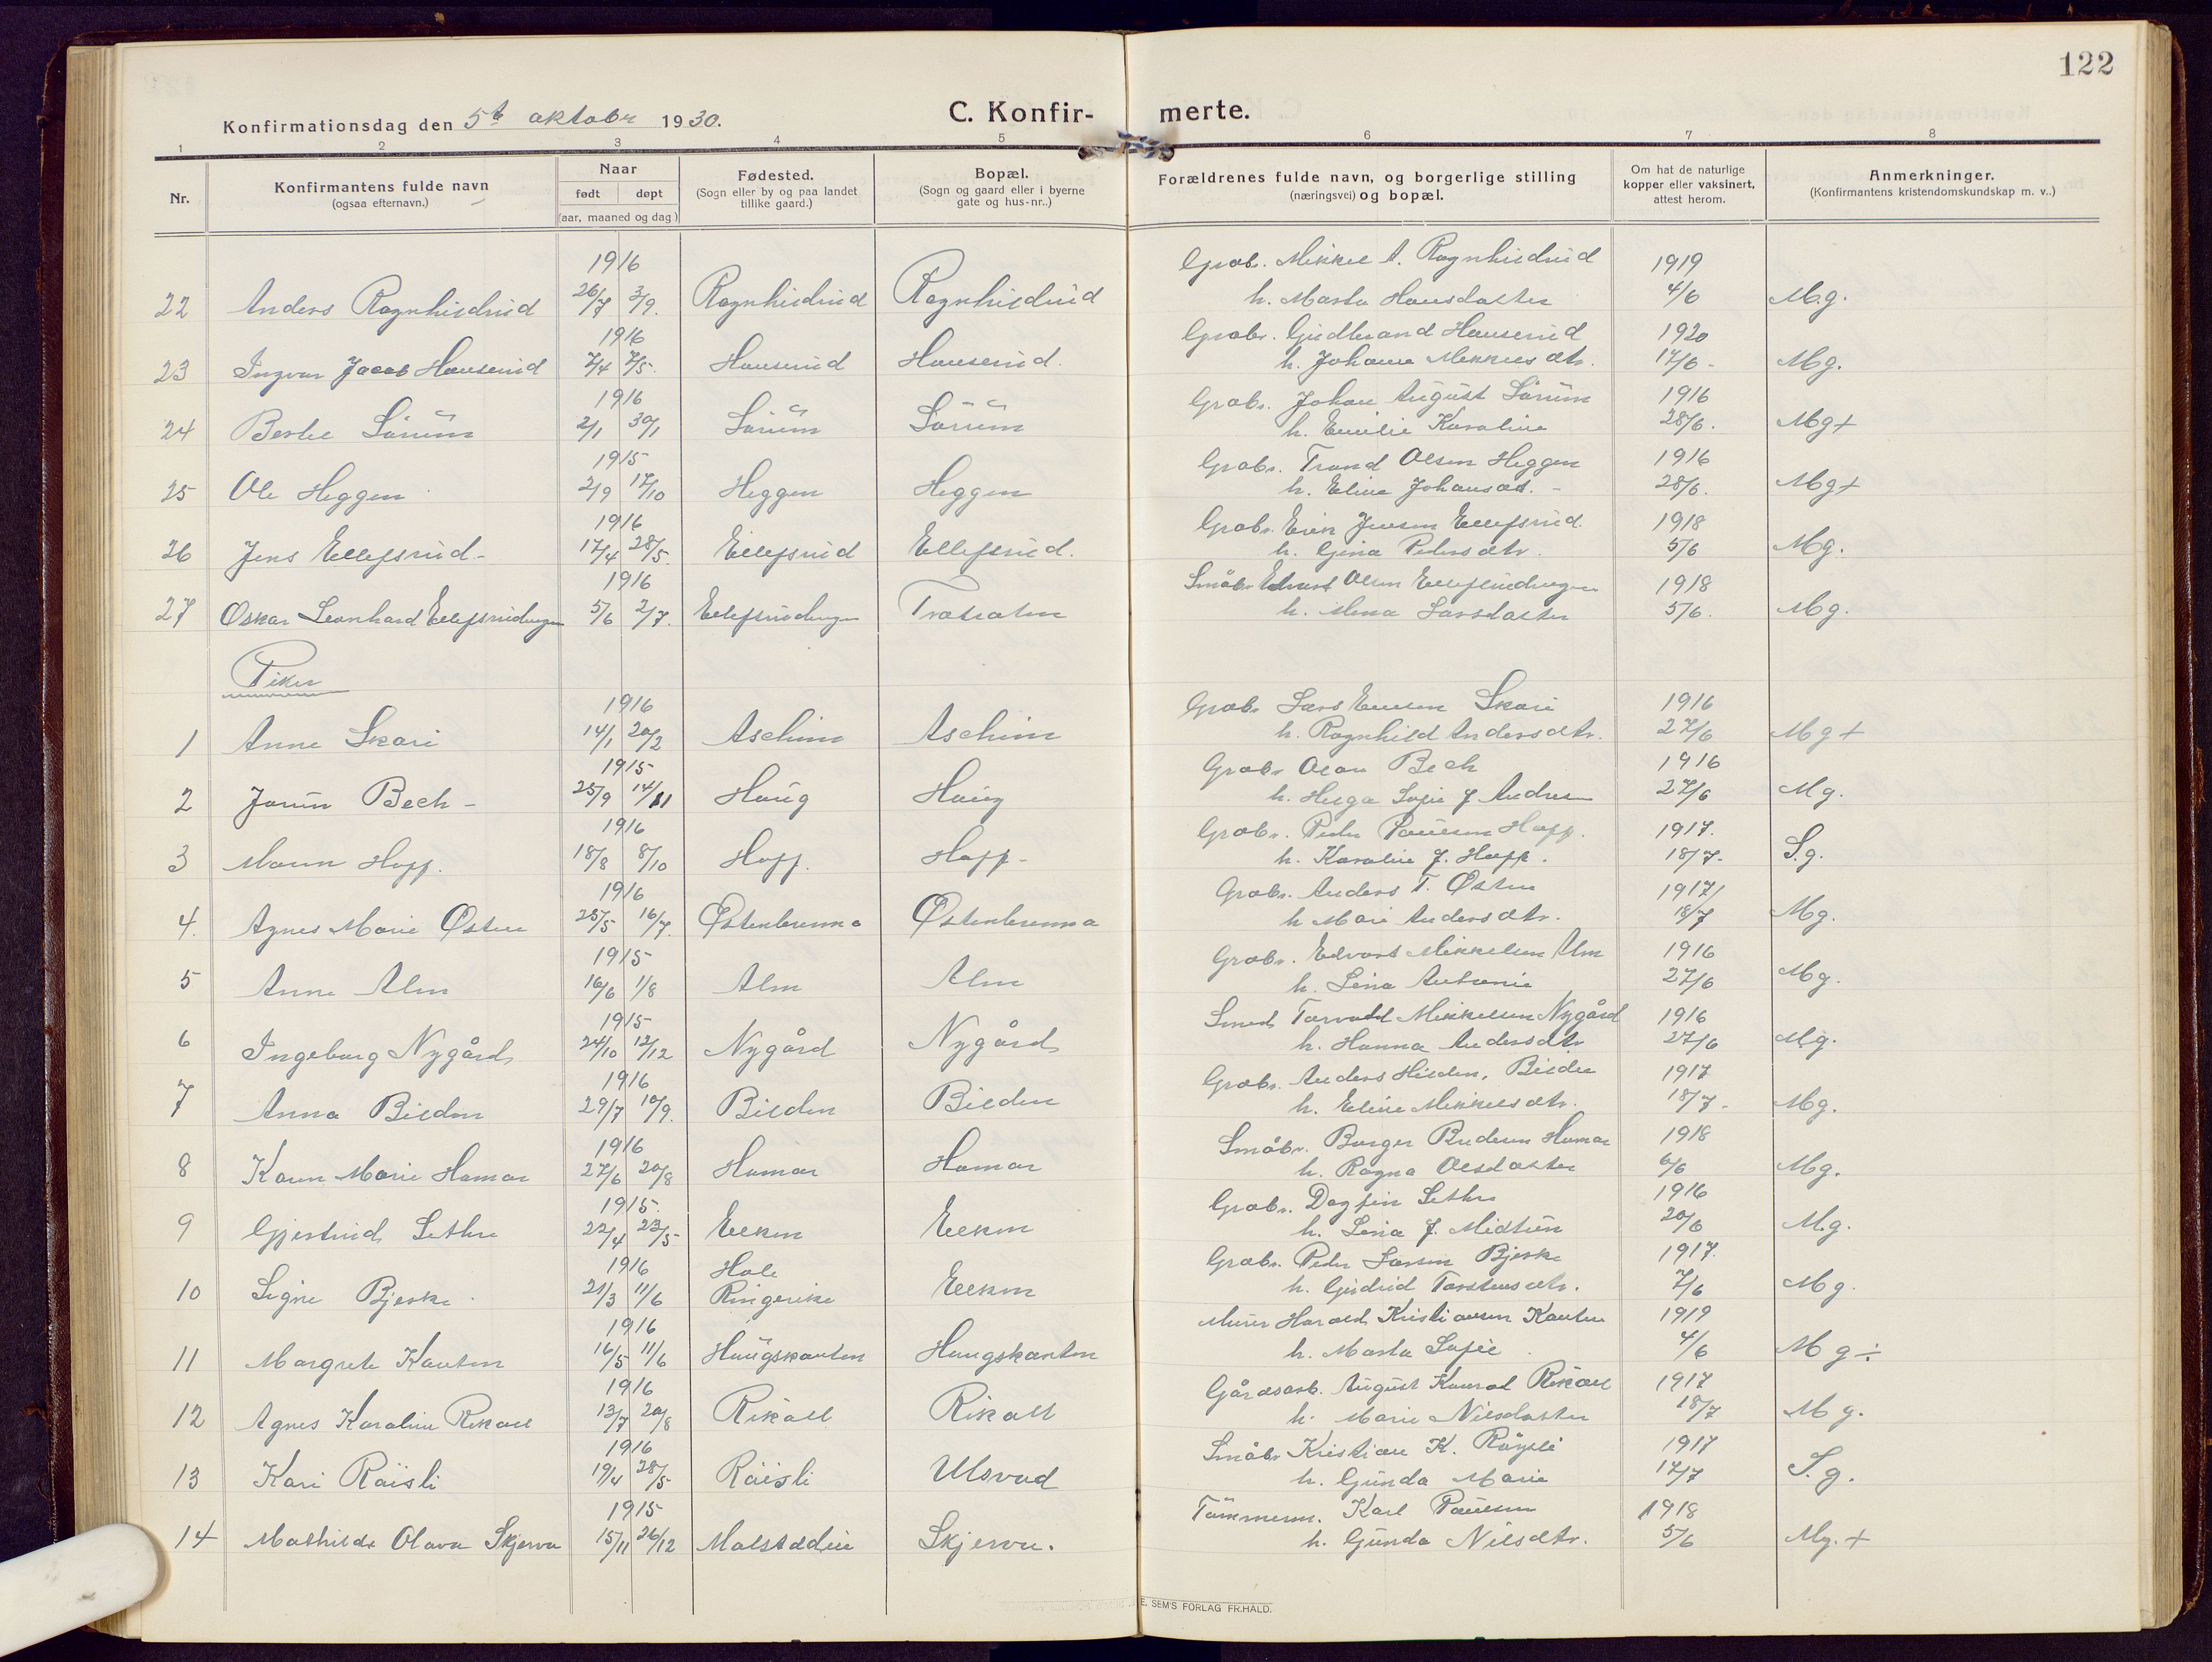 122
Konfirmationsdag den 5te oktobr 1930.
C. Konfir- merte.
1 2 3 4 5 6 7 8
Nr.
Konfirmantens fulde navn
(ogsaa efternavn.)
Naar
født døpt
(aar, maaned og dag)
Fødested.
(Sogn eller by og paa landet
tillike gaard.)
Bopæl.
(Sogn og gaard eller i byerne
gate og hus-nr..)
Forældrenes fulde navn, og borgerlige stilling
(næringsvei) og bopæl.
Om hat de naturlige
kopper eller vaksinert,
attest herom.
Anmerkninger.
(Konfirmantens kristendomskundskap m. v..)
1916 Grabr. Mikkel A. Ragnhildrud 1919
22 Anders Ragnhildrud 26/7 3/9. Ragnhildrud Ragnhildrud h. Marta Hansdatter 4/6 Mg.
1916 Grabr. Gudbrand Hanserud 1920
23 Ingvar Jacob Hanserud 7/4 7/5. Hanserud Hanserud. h. Johanne Mikkelsdtr. 17/6 - Mg.
1916 Grabr. Johan August Sörum 1916
24 Sörum 2/1 30/1 Sörum Sörum h. Emilie Karoline 28/6. Mg+
1915 Grabr. Trond Olsen Heggen 1916
25 Ole Heggen 2/9 17/10 Heggen Heggen h. Eline Johansd. - 28/6. Mg+
1916 Grabr. Erik Jensen Ellefsrud. 1918
26 Jens Ellefsrud - 17/4 28/5. Ellefsrud Ellefsrud. h. Gina Pedersdtr. 5/6 Mg.
1916 Småbr. Edvart Olsen Ellefsrudengen 1918
27 Oskar Leonhard Ellefsrudengen 5/6 2/7. Ellefsrudengen h. Mina Larsdatter 5/6. Mg.
Piker
1916 Grabr. Lars Skari 1916
1 Anne Skari 14/1 20/2 Aschim Aschim h. Ragnhild Andersdtr. 27/6 Mg+
1915 Grabr. Olav Bech 1916
2 Jorun Bech - 25/9 14/11 Haug Haug h. Helga Sofie J Andresen 27/6 Mg.
1916 Grabr. Peder Paulsen Hoff. 1917.
3 Maren Hoff. 18/8 8/10 Hoff. Hoff - h. Karoline J. Hoff. 18/7 - S.g.
1916 Grabr. Anders T. Østen 1917
4. Agnes Marie Østen 25/5 16/7. Østenbrenna Østenbrenna h Mari Andersdtr. 18/7 Mg.
1915 Grabr. Edvart Mikkelsen Alm 1916
5 Anne Alm 16/6 1/8 Alm Alm h. Lina Antonie 27/6 Mg.
1915 Smed Torvald Mikkelsen Nygård 1916
6 Ingeborg Nygård 24/10 12/12 Nygård Nygård h. Hanna Andersdtr 27/6 Mg.
1916 Grabr. Anders Hilden, Bilden 1917
7 Anna Bilden 29/7 10/9. Bilden Bilden h. Eline Mikkelsdtr. 18/7 - Mg.
1916 Småbr. Borger Hamar 1918
8 Karen Marie Hamar 27/6 20/8 Hamar Hamar h. Ragna Olsdatter 6/6 Mg.
1915. Grabr. Dagfin Sethre 1916
9 Gjertrud Sethre 22/4 23/5 - h. Lina J. Midtun 20/6 Mg.
1916 Hole Grabr. Peder Larsen Bjerke 1917.
10 Signe Bjerke 21/3 11/6 Ringerike h. Gudrid Torstensdtr. 7/6 Mg.
1916 Murer Harald Kristiansen Kanten 1919
11 Margrete Kanten 16/5 11/6 Haugskanten Haugskanten h. Marta Sofie 4/6 Mg ÷
1916 Gårdsarb. August Konrad Rikoll 1917
12 Agnes Karoline Rikoll 13/7 20/8 Rikoll Rikoll h. Marie Nilsdatter 18/7 Mg.
1916 Småbr Kristian K. Röisli 1917
13 Kari Röisli 19/4 28/5 - Röisli Ulsvad h. Gunda Marie 17/7 S.g.
1915 Tömmerm. Karl Paulsen 1918
14 Mathilde Olava Skjerva 15/11 26/12 Skjerva. h. Gunda Nilsdtr. 5/6 Mg.+
E. SEM'S FORLAG FR.HALD.